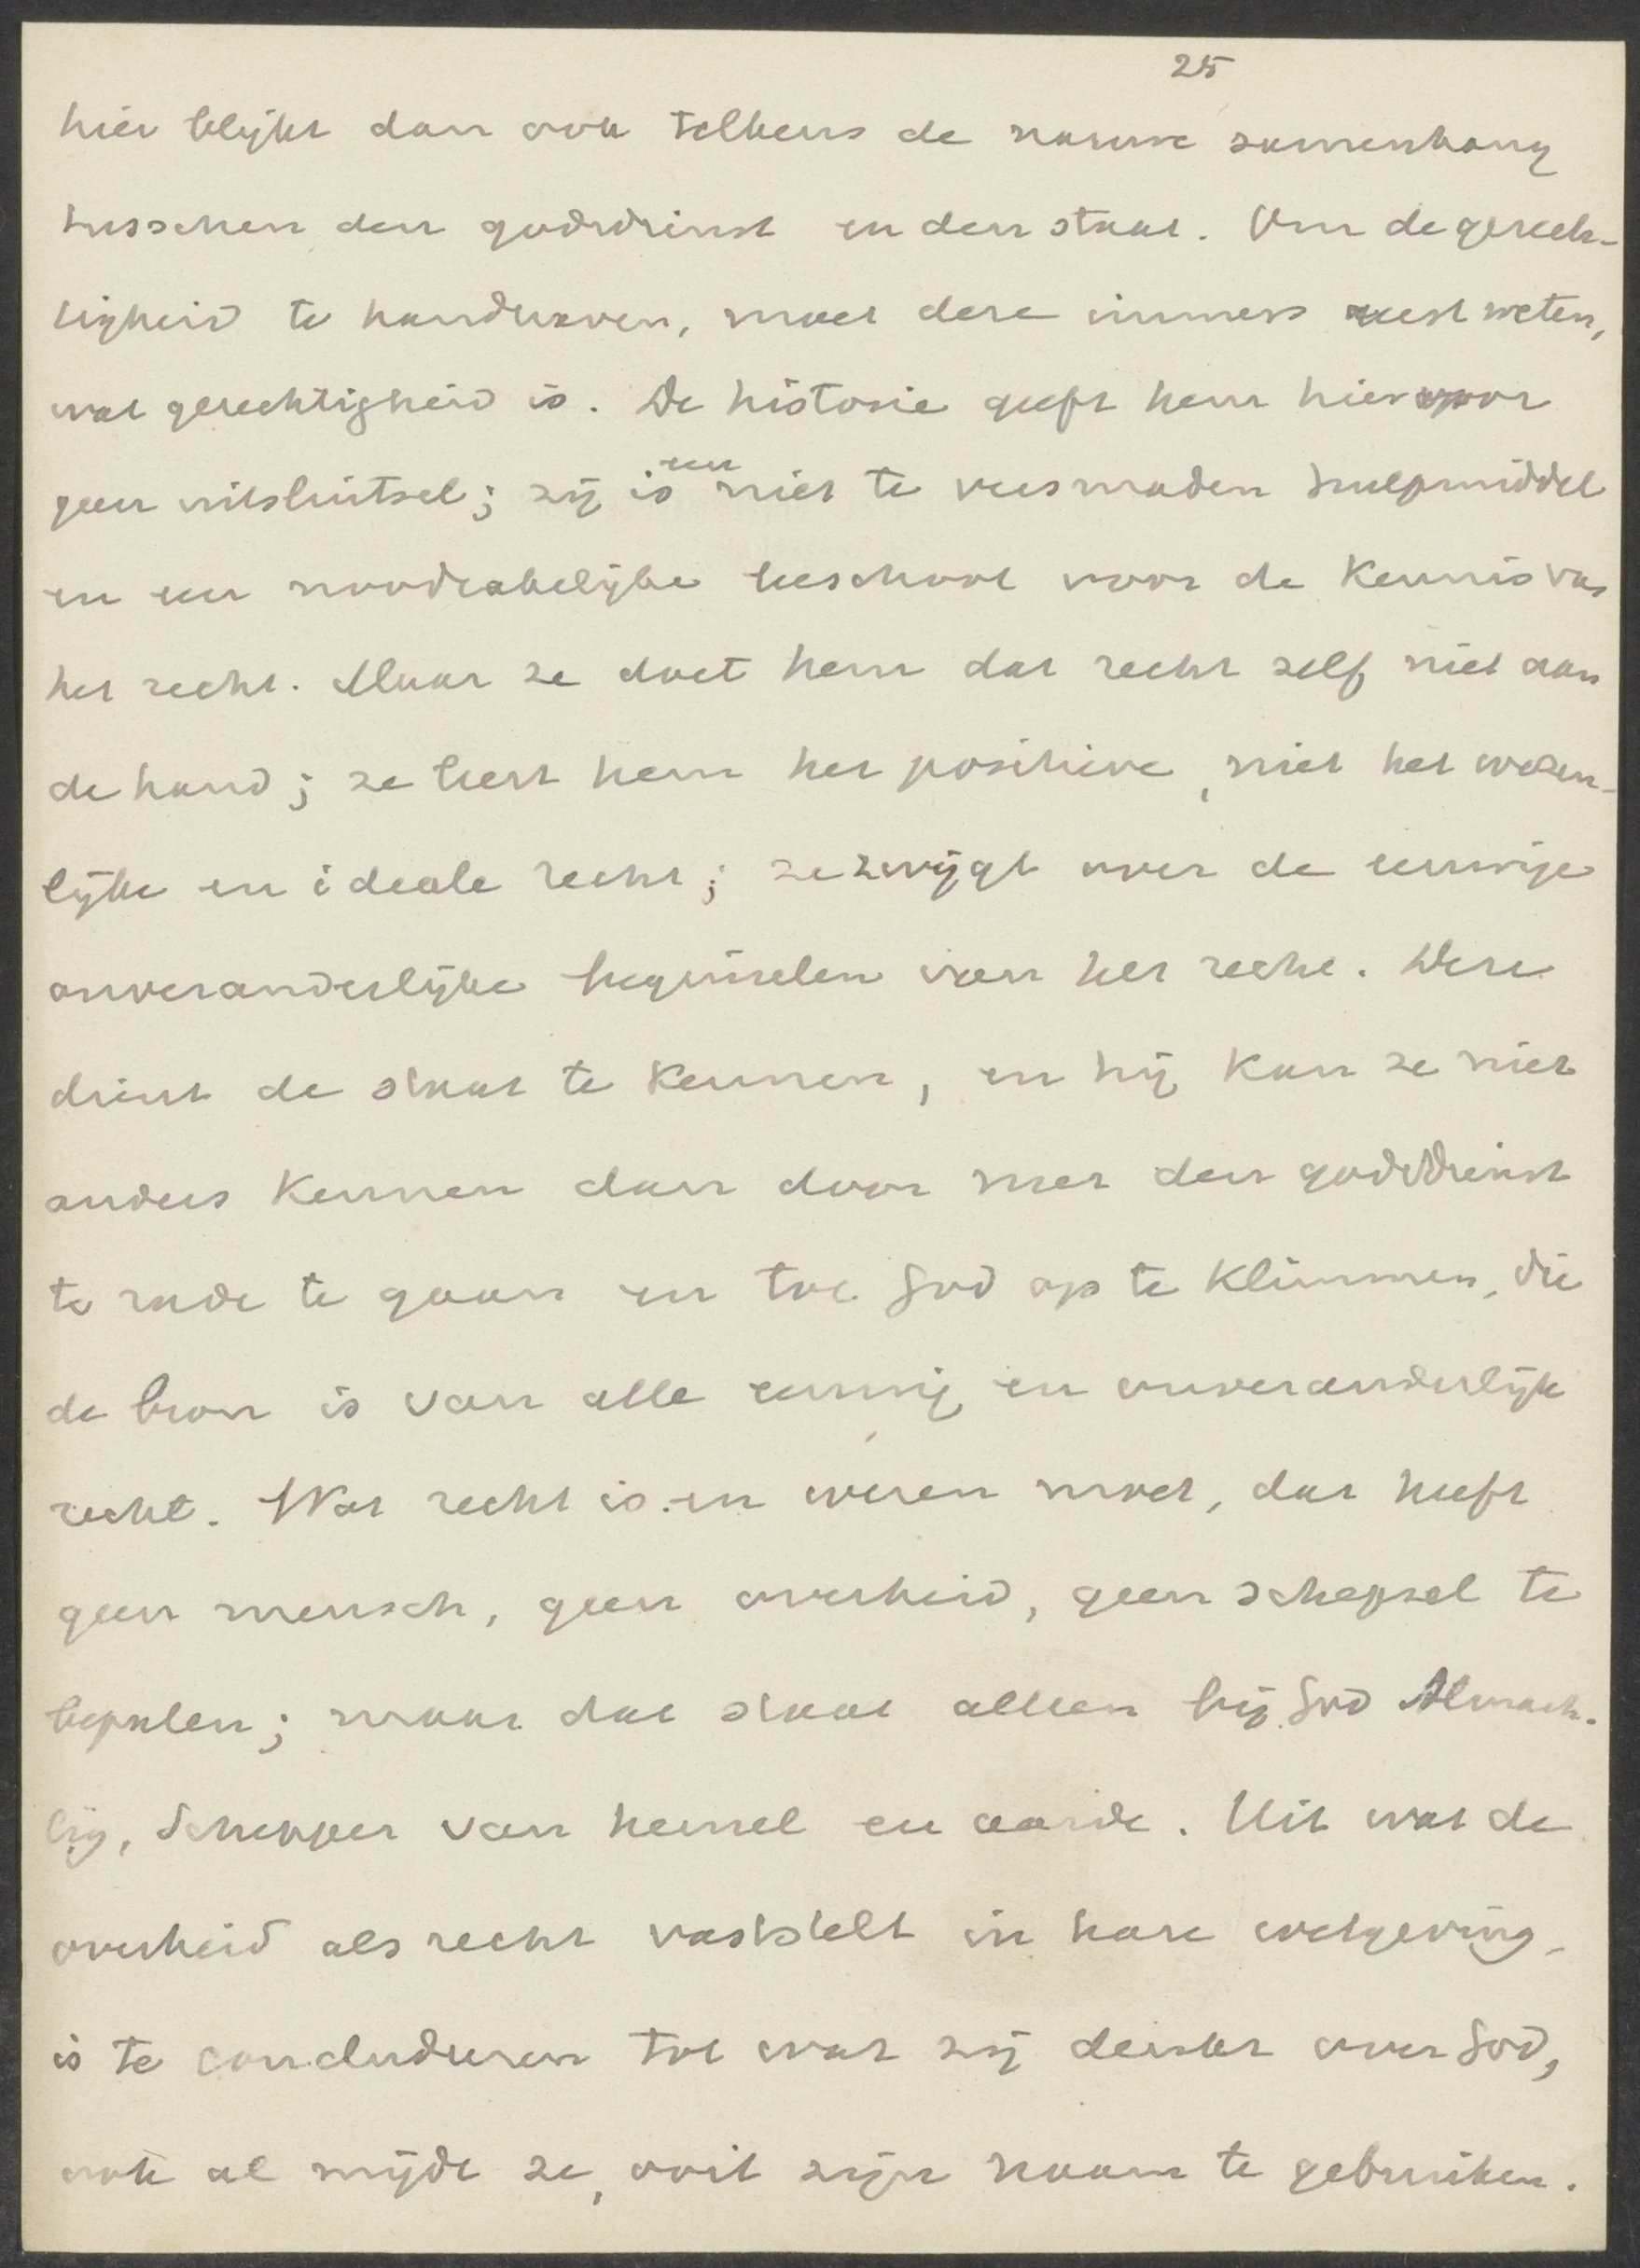 25
hier blijkt dan ook telkens de nauwe samenhang
tusschen den godsdienst en den staat. Om de gerech-
tigheid te handhaven, moet deze immers eerst weten,
wat gerechtigheid is. De historie geeft hem hiervoor
geen uitsluitsel; zij is een niet te versmaden hulpmiddel
en een noodzakelijke leeschool voor de kennis van
het recht. Maar ze doet hem dat recht zelf niet aan
de hand; ze leert hem het positieve, niet het wezen-
lijke en ideale recht; ze zwijgt over de eeuwige
onveranderlijke beginselen van het recht. Deze
dient de staat te kennen, en hij kan ze niet
anders kennen dan door met den godsdienst
te rade te gaan en tot God op te klimmen, die
de bron is van alle eeuwig en onveranderlijk
recht. Wat recht is en wezen moet, dat heeft
geen mensch, geen overheid, geen schepsel te
bepalen; maar dat staat alleen bij God Almach-
tig, Schepper van hemel en aarde. Uit wat de
overheid als recht vaststelt in hare wetgeving,
is te concluderen tot wat zij denkt over God,
ook al mijdt ze, ooit zijn naam te gebruiken.